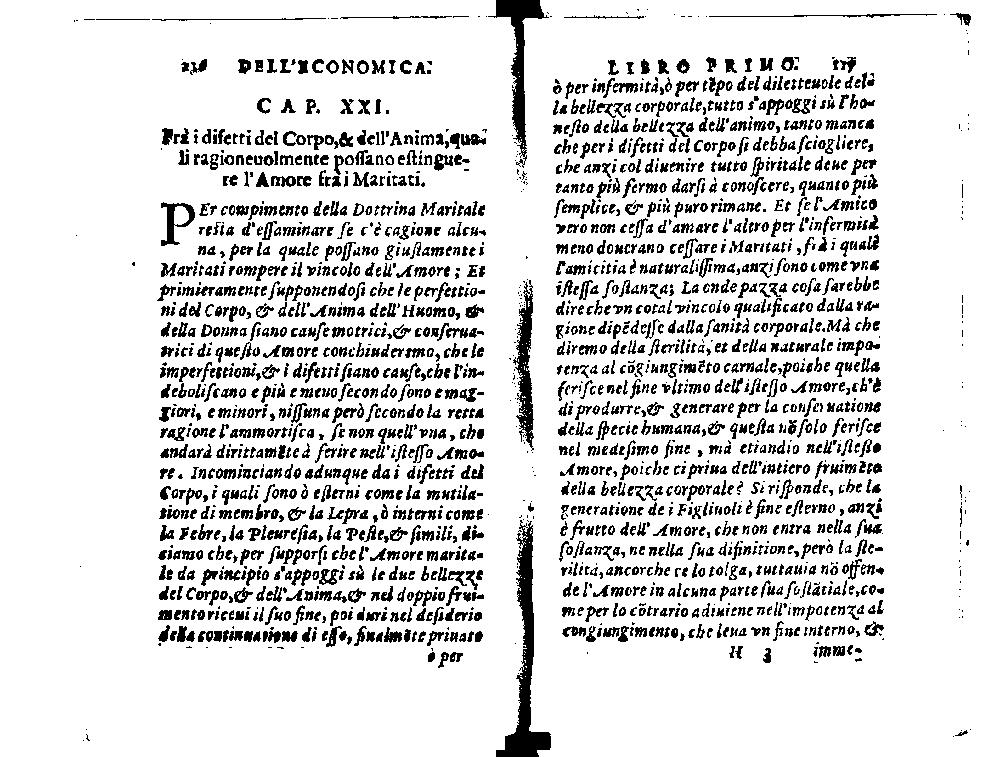 236 DELL'ECONOMICA.
CAP. XXI.
Frà i difetti del Corpo,& dell'Anima,qua-
li ragioneuolmente possano estingue-
re l'Amore frà i Maritati.
PEr compimento della Dottrina Maritale
resta d'essaminare se c'è cagione alcu-
na, per la quale possano giustamente i
Maritati rompere il vincolo dell'Amore; Et
primieramente supponendosi che le perfettio-
ni del Corpo, & dell'Anima dell'Huomo, &
della Donna siano cause motrici,& conserua-
trici di questo Amore conchiuderemo, che le
imperfettioni,& i difetti siano cause,che l'in-
deboliscano e più e meno secondo sono e mag-
giori, e minori, nissuna però secondo la retta
ragione l'ammortisca, se non quell'vna, che
andarà dirittamēte à ferire nell'istesso Amo-
re. Incominciando adunque da i difetti del
Corpo, i quali sono ò esterni come la mutila-
tione di membro, & la Lepra, ò interni come
la Febre, la Pleuresia, la Peste,& simili, di-
ciamo che, per supporsi che l'Amore marita-
le da principio s'appoggi sù le due bellezze
del Corpo,& dell'Anima,& nel doppio frui-
mento riceui il suo fine, poi duri nel desiderio
della continuatione di esso, finalmēte priuato
ò per
LIBRO PRIMO. 117
ò per infermità,ò per tēpo del diletteuole del-
la bellezza corporale,tutto s'appoggi sù l'ho-
nesto della bellezza dell'animo, tanto manca
che per i difetti del Corpo si debba sciogliere,
che anzi col diuenire tutto spiritale deue per
tanto più fermo darsi à conoscere, quanto più
semplice, & più puro rimane. Et se l'Amico
vero non cessa d'amare l'altro per l'infermità
meno dourano cessare i Maritati, frà i quali
l'amicitia è naturalissima,anzi sono come vna
istessa sostanza; La onde pazza cosa sarebbe
dire che vn cotal vincolo qualificato dalla ra-
gione dipēdesse dalla sanità corporale.Mà che
diremo della sterilità, et della naturale impo-
tenza al cōgiungimēto carnale,poiche quella
ferisce nel fine vltimo dell'istesso Amore,ch'è
di produrre,& generare per la conseruatione
della specie humana,& questa nō solo ferisce
nel medesimo fine, mà etiandio nell'istesso
Amore, poiche ci priua dell'intiero fruimēto
della bellezza corporale? Si risponde, che la
generatione de i Figliuoli è fine esterno, anzi
è frutto dell'Amore, che non entra nella sua
sostanza, ne nella sua difinitione, però la ste-
rilità, ancorche ce lo tolga, tuttauia nō offen-
de l'Amore in alcuna parte sua sostātiale,co-
me per lo cōtrario adiuiene nell'impotenza al
congiungimento, che leua vn fine interno, &
H 3 imme-